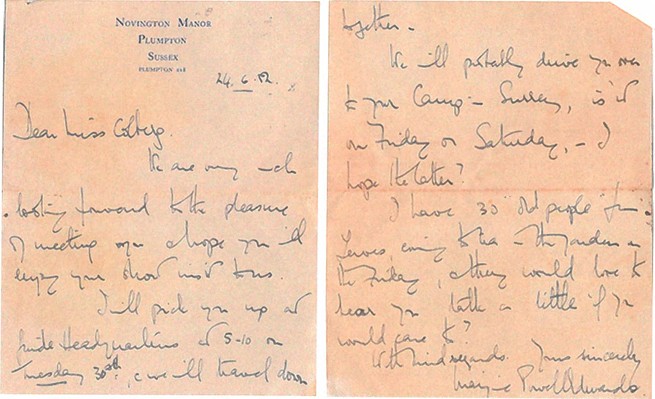 NOVINGTON MANOR
PLUMPTON
SUSSEX
24.6.52.
Dear Miss
We are very much
looking forward to the pleasure
of meeting you & hope you will
enjoy your short visit to us.
I will pick you up at
Guide Headquarters at 5-10 on
Tuesday 30th, & we will travel down
together -
We will probably drive you over
to your Camp in Surrey, is it
on Friday or Saturday, - I
hope the latter?
I have 30 old people from
Lewes, coming to tea in the garden on
the Friday, & they would love to
hear you talk a little if you
would care to?
With kind regards. Yours sincerely